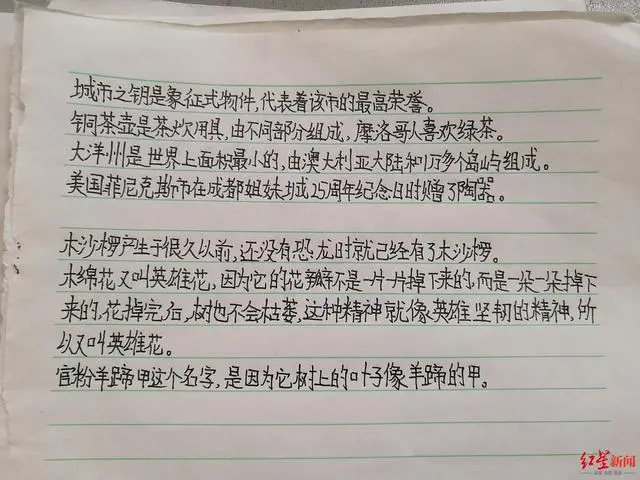 城市之钥是象征式物件,代表着该市的最高荣誉。
铜茶壶是茶炊用具,由不同部分组成,摩洛哥人喜欢绿茶。
大洋州是世界上面积最小的,由澳大利亚大陆和1万多个岛屿组成。
美国菲尼克斯市在成都姐妹城25周年纪念日时赠了陶器。
木沙椤产生于很久以前,还没有恐龙时就已经有了木沙椤。
木绵花又叫英雄花,因为它的花瓣不是一片一片掉下来的,而是一朵一朵掉下
来的,花掉完后,树也不会枯萎,这种精神就像英雄坚韧的精神,所
以又叫英雄花。
宫粉羊蹄甲这个名字,是因为它树上的叶子像羊蹄的甲。
红星新闻